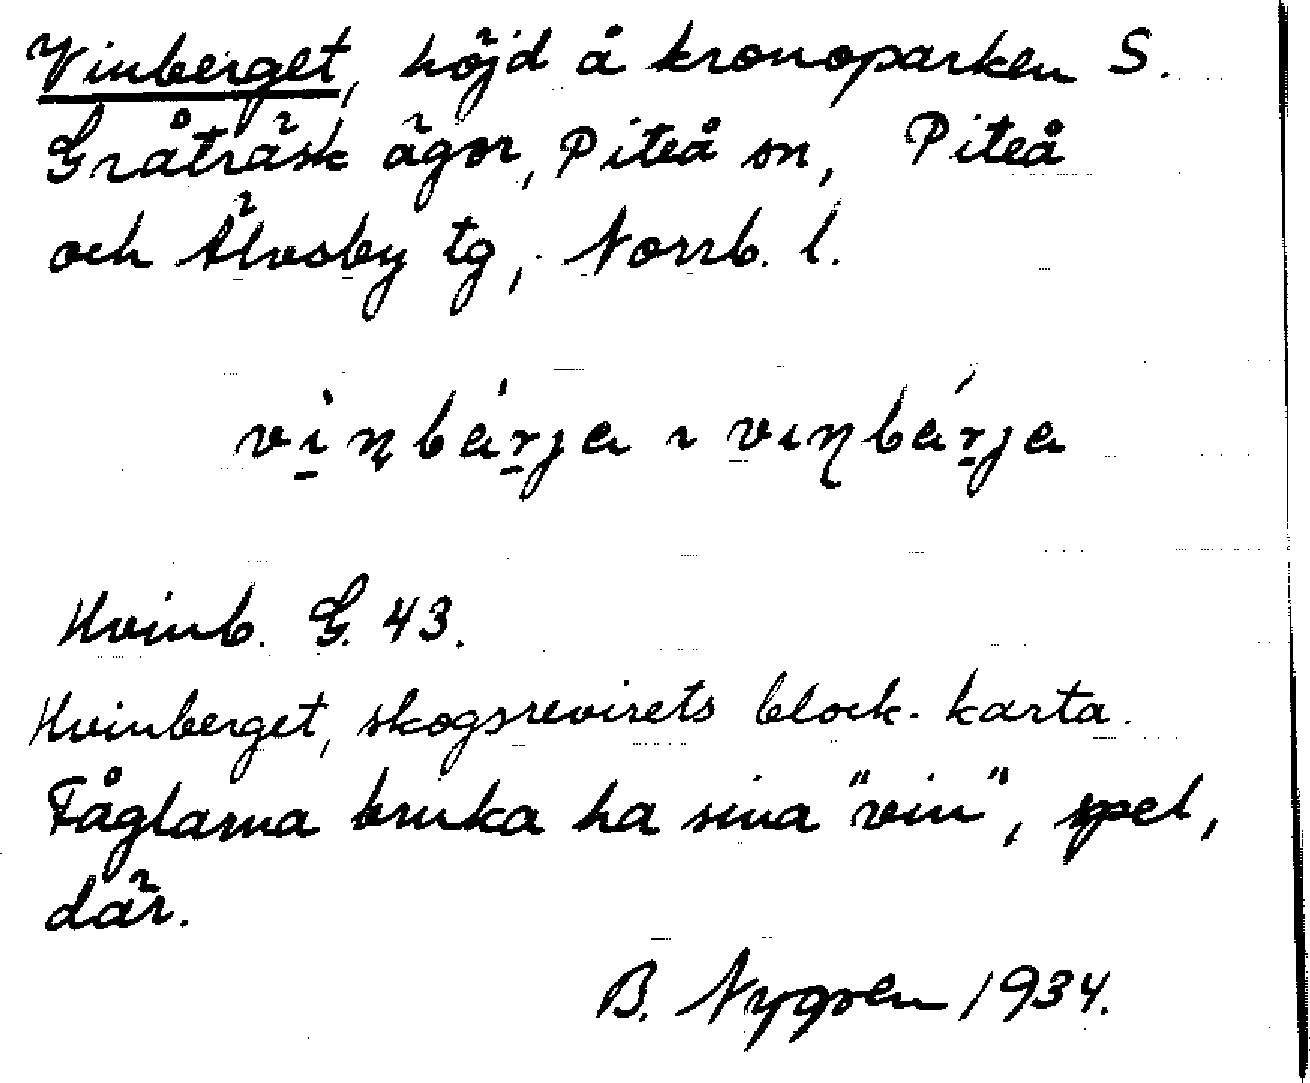 Vinberget, höjd å kronoparken S.
Gråträsk ägor, Piteå sn, Piteå
och Älvsby tg, Norrb. l.
vi̠ṇbár̠ja ~ vıɳbár̠ja
Hvinb. G. 43.
Hvinberget, skogsrevirets block. karta.
Fåglarna bruka ha sina "vin", spel,
där.
B. Nygren 1934.